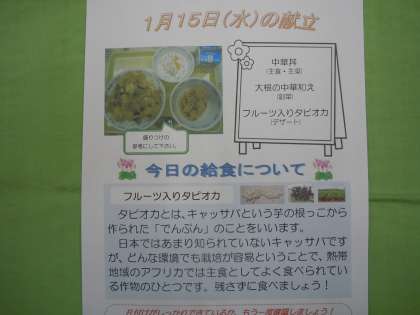 1月15日(水)の献立
中華丼
(主食・主菜)
大根の中華和え
(副菜)
フルーツ入りタピオカ
(デザート)
盛りつけの
参考にして下さい。
今日の給食について
フルーツ入りタピオカ
タピオカとは、キャッサバという芋の根っこから
作られた「でんぷん」のことをいいます。
日本ではあまり知られていないキャッサバです
が、どんな環境でも栽培が容易ということで、熱帯
地域のアフリカでは主食としてよく食べられている
作物のひとつです。残さずに食べましょう!